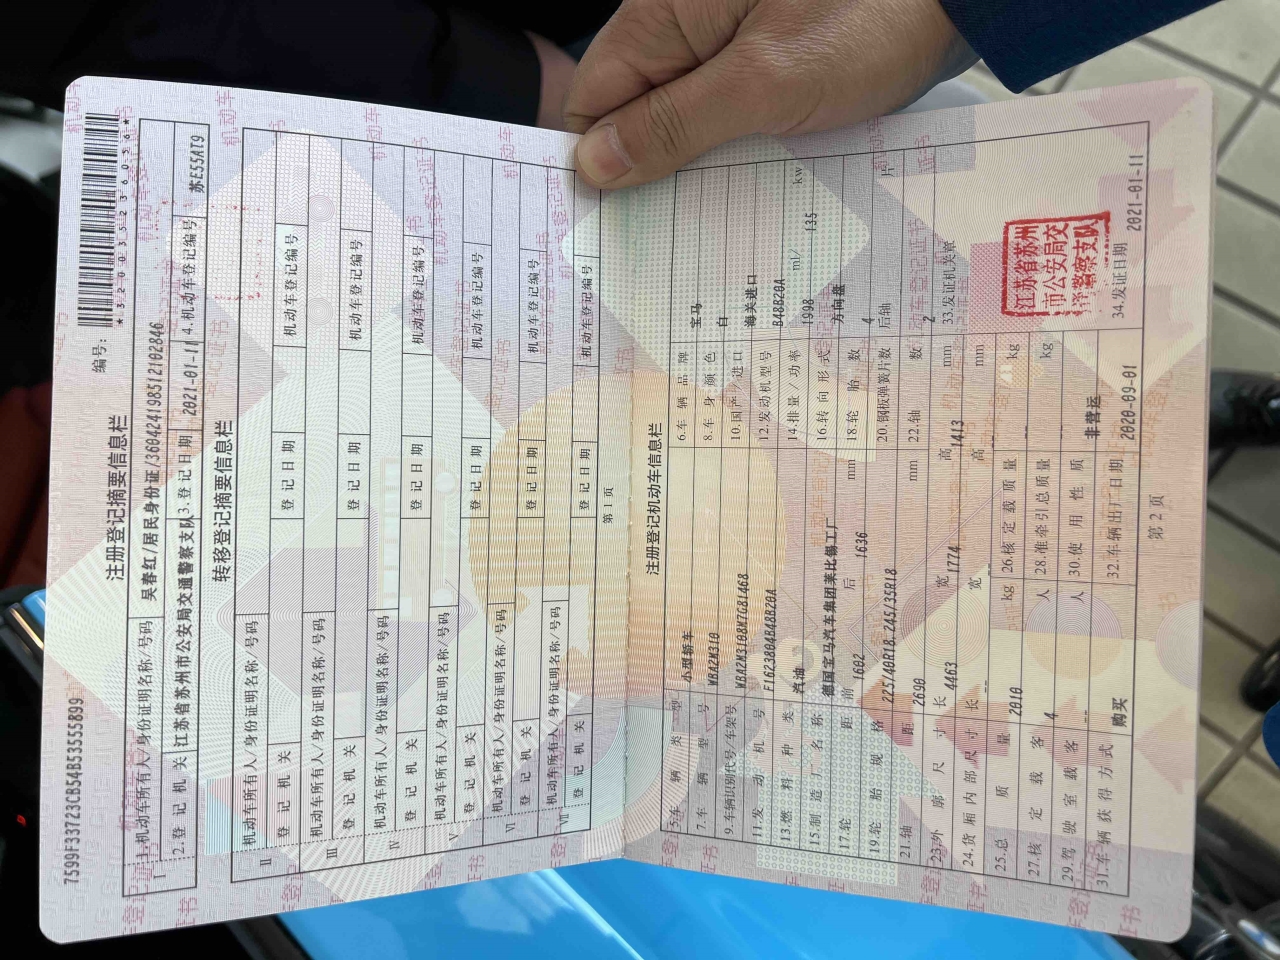 7599F33723CB54B53555899
注册登记摘要信息栏
编号:
*320035236056*
Ⅰ
1.机动车所有人/身份证明名称/号码 吴春红/居民身份证/360424198512102846
2.登记机关 江苏省苏州市公安局交通警察支队 3.登记日期 2021-01-11 4.机动车登记编号 苏E55AT9
转移登记摘要信息栏
Ⅱ
机动车所有人/身份证明名称/号码
登记机关 登记日期 机动车登记编号
Ⅲ
机动车所有人/身份证明名称/号码
登记机关 登记日期 机动车登记编号
Ⅳ
机动车所有人/身份证明名称/号码
登记机关 登记日期 机动车登记编号
Ⅴ
机动车所有人/身份证明名称/号码
登记机关 登记日期 机动车登记编号
Ⅵ
机动车所有人/身份证明名称/号码
登记机关 登记日期 机动车登记编号
Ⅶ
机动车所有人/身份证明名称/号码
登记机关 登记日期 机动车登记编号
第 1 页
注册登记机动车信息栏
5.车辆类型 小型轿车 6.车辆品牌 宝马
7.车辆型号 WBA2M310 8.车身颜色 白
9.车辆识别代号/车架号 WBA2M3108M7G81468 10.国产/进口 海关进口
11.发动机号 F1623804B48B20A 12.发动机型号 B48B20A
13.燃料种类 汽油 14.排量/功率 1998 ml/ 135 kw
15.制造厂名称 德国宝马汽车集团莱比锡工厂 16.转向形式 方向盘
17.轮距 前 1602 后 1636 mm 18.轮胎数 4
19.轮胎规格 225/40R18.245/35R18 20.钢板弹簧片数 后轴 片
21.轴距 2690 mm 22.轴数 2
23.外廓尺寸 长 4463 宽 1774 高 1413 mm 33.发证机关章
24.货厢内部尺寸 长 -- 宽 -- 高 -- mm
25.总质量 2010 kg 26.核定载质量 -- kg
27.核定载客 4 人 28.准牵引总质量 -- kg
29.驾驶室载客 -- 人 30.使用性质 非营运
31.车辆获得方式 购买 32.车辆出厂日期 2020-09-01 34.发证日期 2021-01-11
江苏省苏州
市公安局交
通警察支队
第 2 页